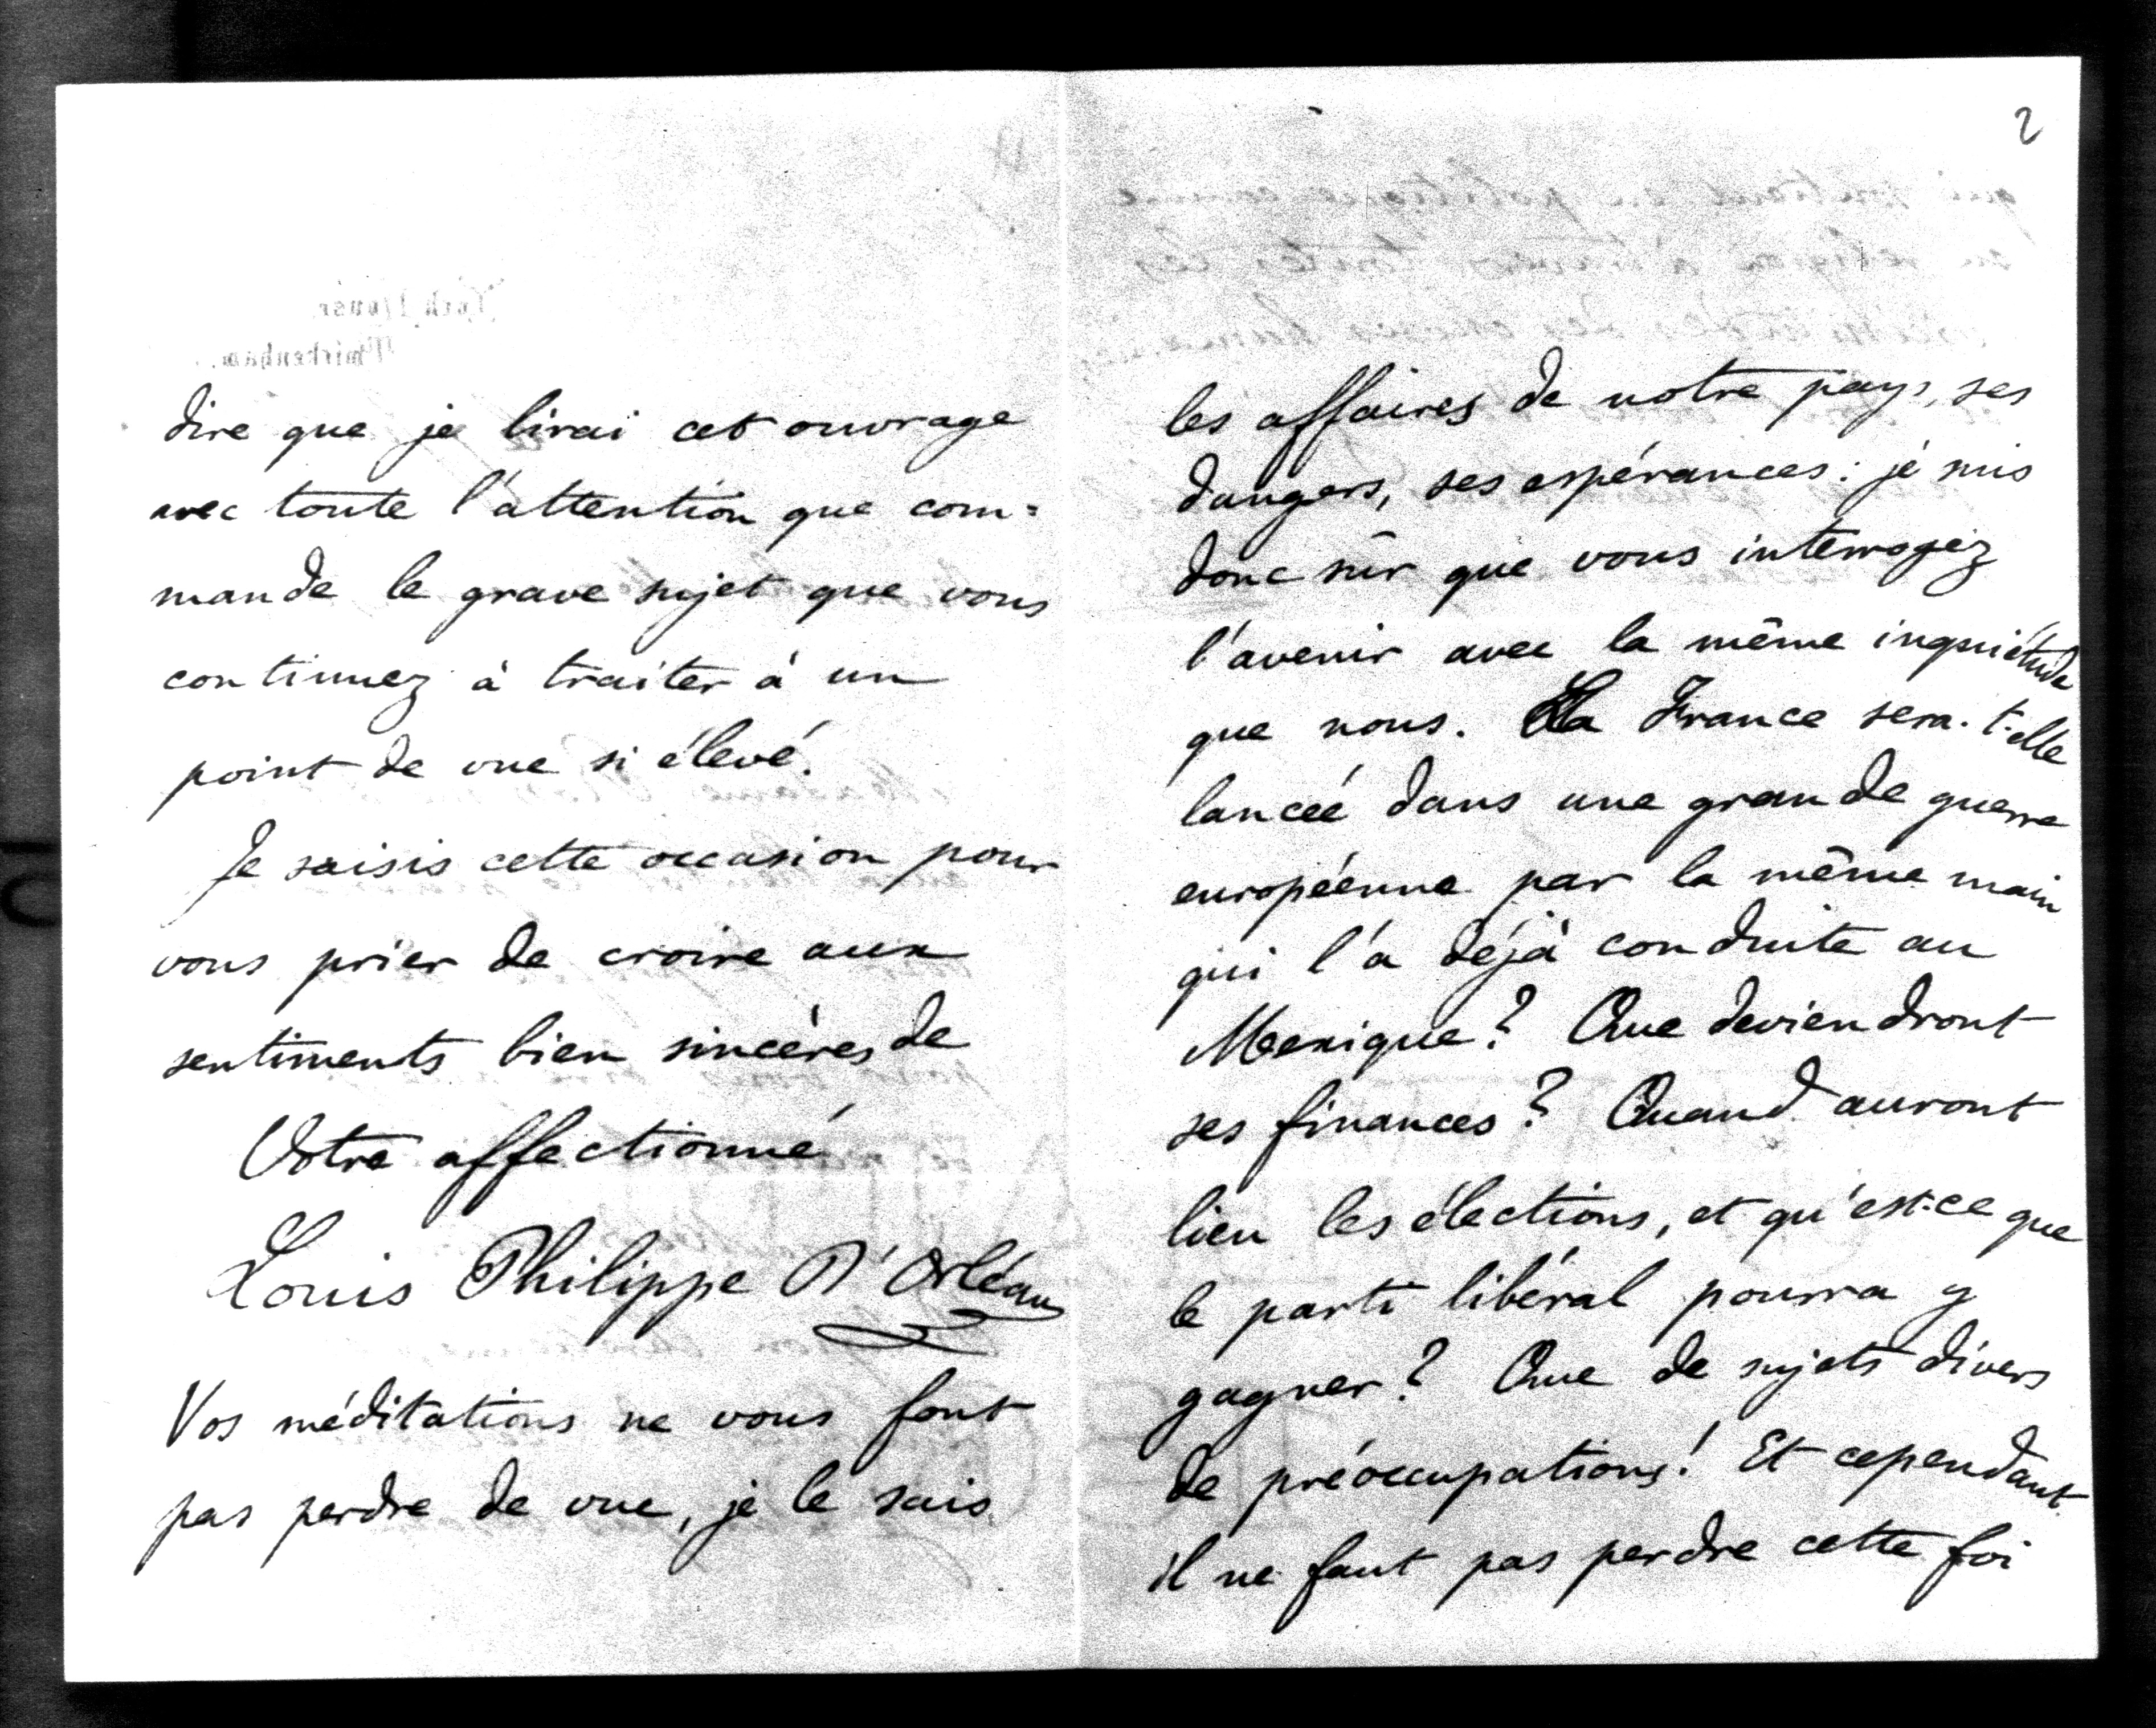 dire que je lirai cet ouvrage
avec toute l'attention que com=
mande le grave sujet que vous
continuez à traiter à un
point de vue si élevé.
Je saisis cette occasion pour
vous prier de croire aux
sentiments bien sincères de
Votre affectionné
Louis Philippe d'Orléans
Vos méditations ne vous font
pas perdre de vue, je le sais
2
les affaires de notre pays, ses
dangers, ses espérances: je suis
donc sûr que vous interrogez
l'avenir avec la même inquiétude
que nous. La France sera-t-elle
lancée dans une grande guerre
européenne par la même main
qui l'a déjà conduite au
Mexique? Que deviendront
ses finances? Quand auront
lieu les élections, et qu'est-ce que
le parti libéral pourra y
gagner? Que de sujets divers
de préoccupations! Et cependant
il ne faut pas perdre cette foi